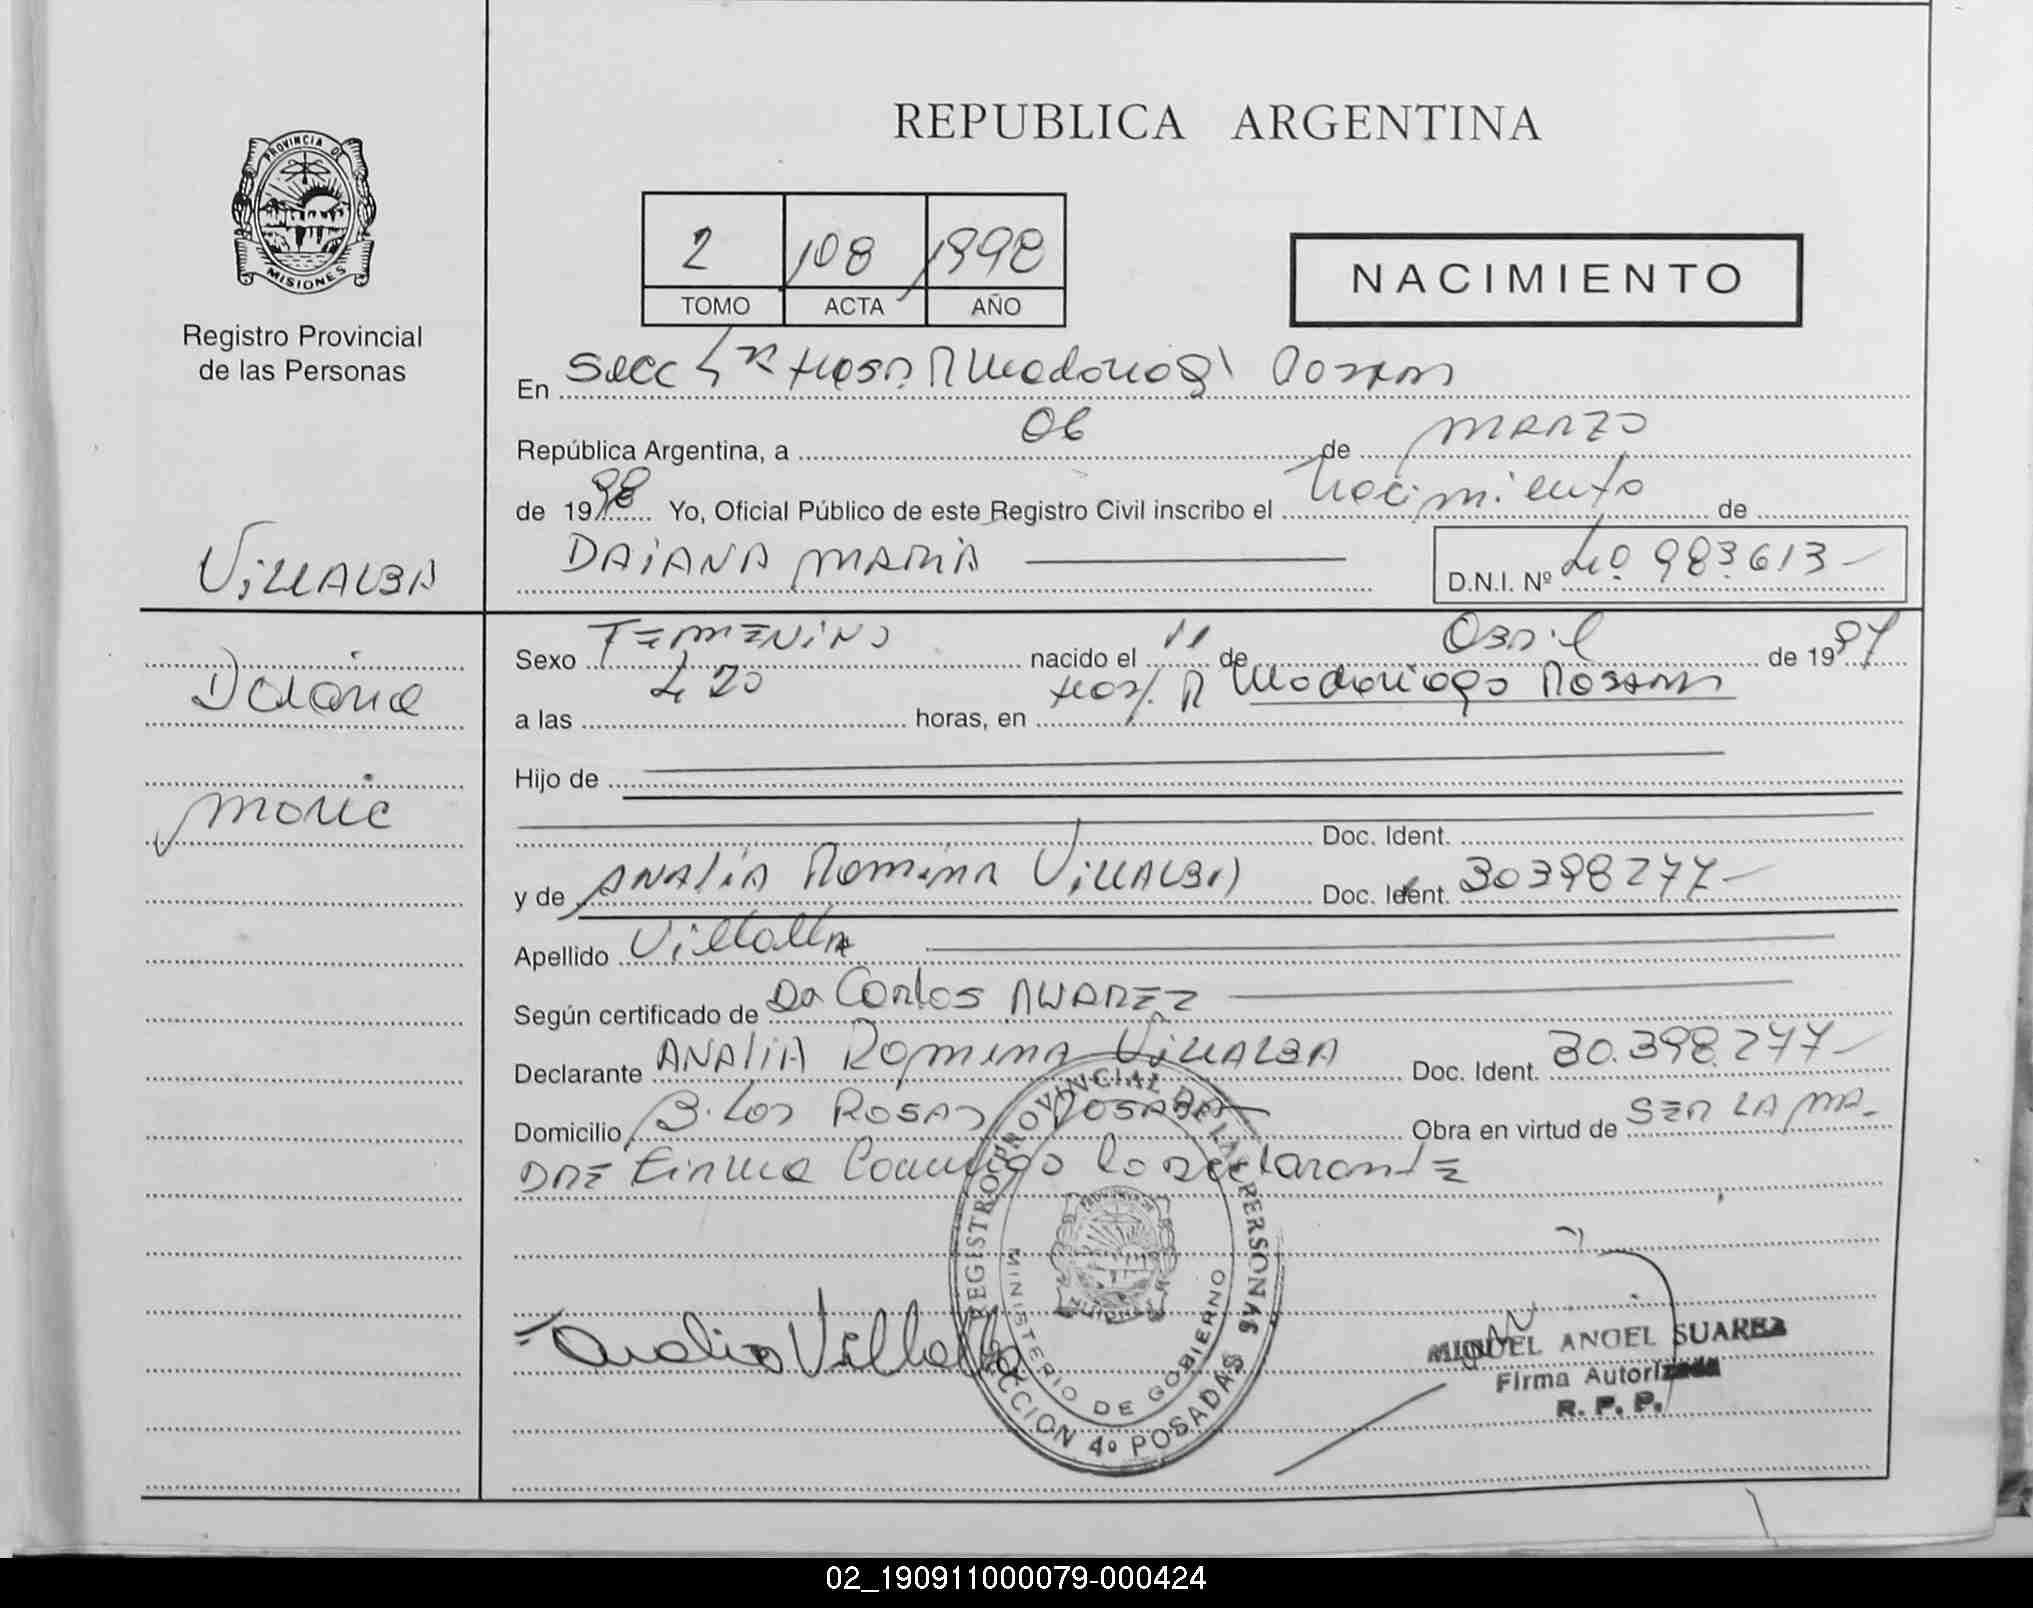 REPUBLICA ARGENTINA
PROVINCIA DE
MISIONES
Registro Provincial
de las Personas
2 108 1998
TOMO ACTA AÑO
NACIMIENTO
En Secc 4ª Hosp. R Madariaga Posadas
República Argentina, a 06 de marzo
de 1998 Yo, Oficial Público de este Registro Civil inscribo el Nacimiento de
DAIANA MARIA D.N.I. Nº 40.983.613-
VILLALBA
Daiana
Maria
Sexo FEMENINO nacido el 11 de Abril de 1997
a las 4 20 horas, en Hosp. R Madariaga Posadas
Hijo de
Doc. Ident.
y de ANALIA Romina VILLALBA Doc. Ident. 30398277-
Apellido Villalba
Según certificado de Dr Carlos ALVAREZ
Declarante ANALIA Romina VILLALBA Doc. Ident. 30.398.277-
Domicilio B. Los ROSAS POSADAS Obra en virtud de SER LA MA-
DRE Firma Conmigo la declarante
REGISTRO PROVINCIAL DE LAS PERSONAS
MINISTERIO DE GOBIERNO
SECCION 4º POSADAS
Analia Villalba
MIGUEL ANGEL SUAREZ
Firma Autorizada
R. P. P.
02_190911000079-000424